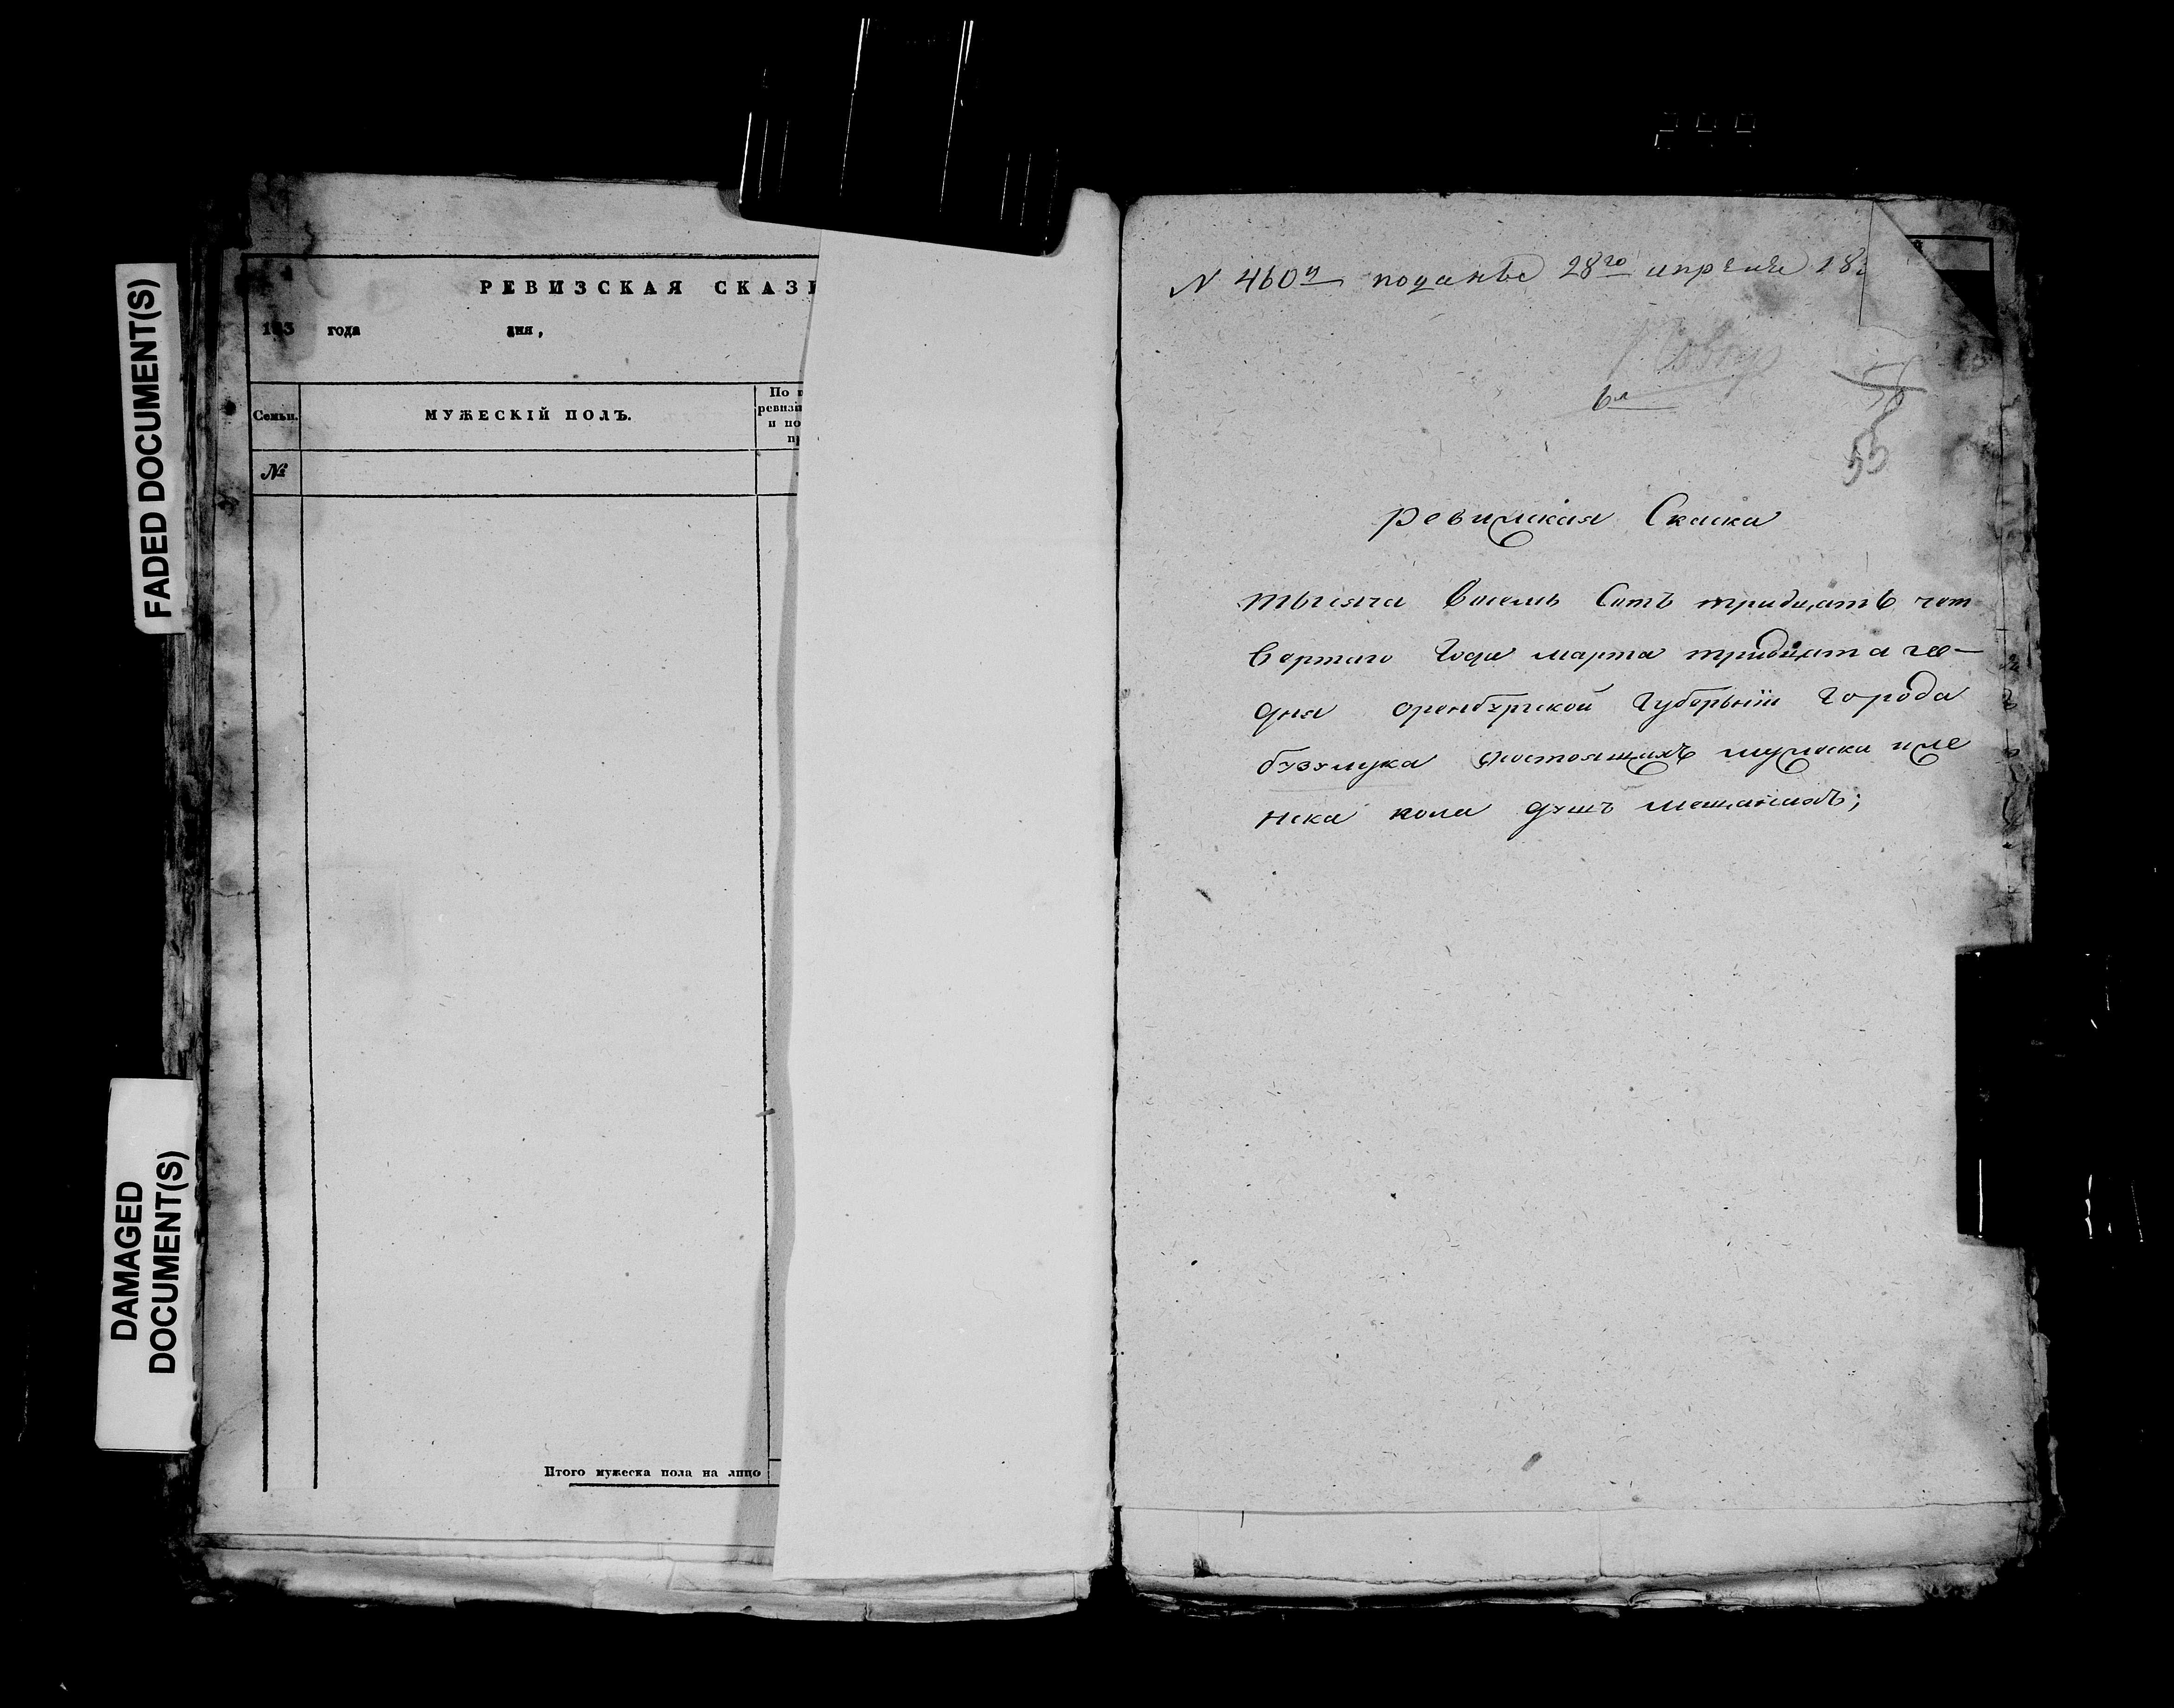 FADED DOCUMENT(S)
DAMAGED
DOCUMENT(S)
РЕВИЗСКАЯ СКАЗ
183 года дня,
Семьи.
МУЖЕСКІЙ ПОЛЪ.
По
ревизі
и по
№
Итого мужеска пола на лицо
N 460й поданы 28го апреля 18
55
ревиская Скаска
тысяча восемь Сотъ тридцать чет
вертаго Года марта тридцатаго
дня оренбургской Губерніи Города
бузулука состоящихъ мужеска и же
нска пола душъ мещанахъ;